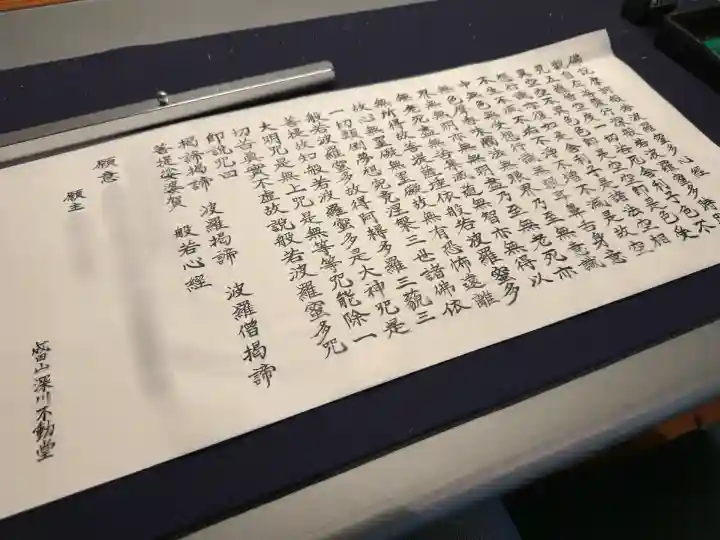 佛説摩訶般若波羅蜜多心経
見五
異空空不異色
想行識亦復如是舎利子是諸法空相
不生不滅不垢不浄不増不減是故空
中無色無受想行識無眼耳鼻舌身意
無色聲香味觸法無眼界乃至無意識
界無無明亦無無明盡乃至無老死亦
無老死盡無苦集滅道無智亦無得以
無所得故菩提薩埵依般若波羅蜜多
故心無罣礙無罣礙故無有恐怖遠離
一切顛倒夢想究竟涅槃三世諸佛依
般若波羅蜜多故得阿耨多羅三藐三
菩提故知般若波羅蜜多是大神咒是
大明咒是無上咒是無等等咒能除一
切苦真實不虚故説般若波羅蜜多咒
即説咒曰
揭諦揭諦 波羅揭諦 波羅僧揭諦
菩提娑婆賀 般若心経
願意
願主
成田山深川不動堂